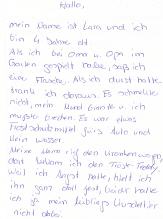 Hallo,
mein Name ist Lara und ich
bin 4 Jahre alt.
Als ich bei Oma u. Opa im
Garten gespielt habe, sah ich
eine Flasche. Als ich durst hatte
trank ich daraus. Es schmeckte
nicht, mein Mund brannte u. ich
musste brechen. Es war etwas
Frostschutzmittel fürs Auto und
kein Wasser.
Meine Mama rief den Krankenwagen,
dort bekam ich den Trost-Teddy.
Weil ich Angst hatte, hielt ich
ihn ganz doll fest, leider hatte
ich ja mein Lieblings Kuscheltier
nicht dabei.